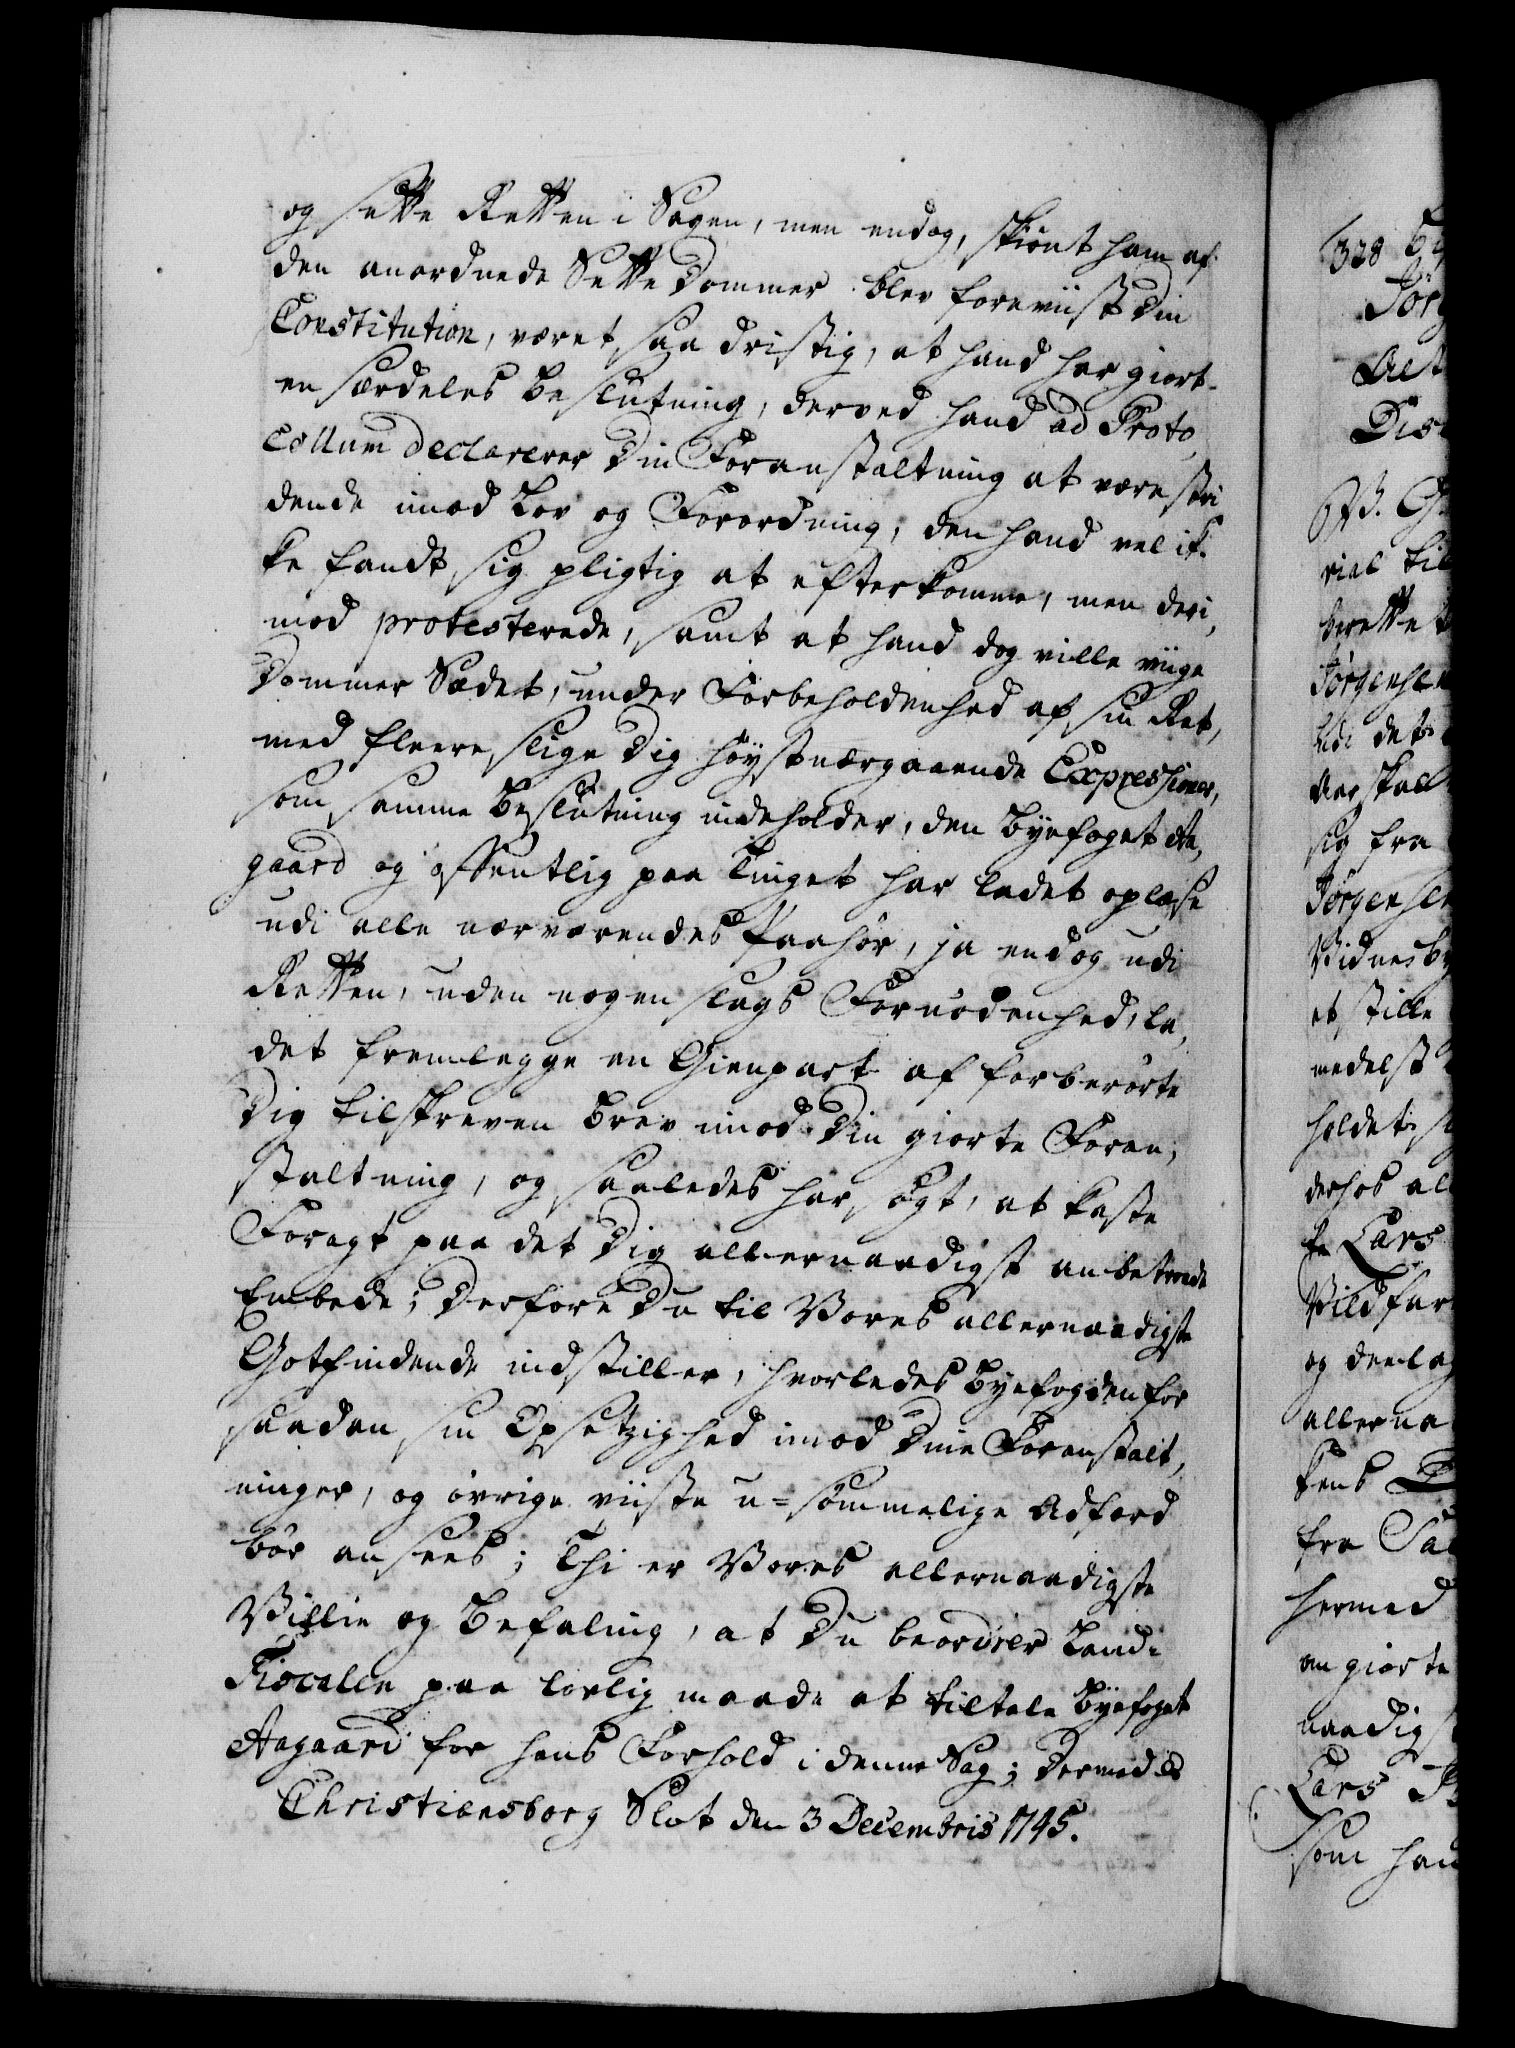 og sette Retten i Sagen, men endog, skiønt ham af
den anordnede Sette Dommer blev foreviist Din
Constitution, været saa dristig, at hand har giort
en særdeles Beslutning, derved hand ad Proto,
collum declarerer Din Foranstaltning at være stri
dende imod Lov og Forordning, den hand vel ik-
ke fandt sig pligtig at efterkomme, men deri,
mod protesterede, samt at hand dog ville viige
Dommer Sædet, under Forbeholdenhed af sin Ret,
med fleere slige Dig høystnærgaaende Expressioner,
som samme Beslutning indeholder, den Byefoget Aa,
gaard og offentlig paa Tinget har ladet oplæse
udi alle nærværendes Paahør, ja endog udi
Retten, uden nogen slags Fornødenhed, la,
det fremlegge en Gienpart af forberørte
Dig tilskreven Brev imod Din giorte Foran,
staltning, og saaledes har søgt, at kaste
Foragt paa det Dig allernaadigst anbetroede
Embede; Derfore Du til Vores allernaadigste
Gotfindende indstiller, hvorledes Byefogden for
saadan sin Opsetzighed imod Dine Foranstalt,
ninger, og øvrige viiste u=sømmelige Adfærd
bør ansees; Thi er Vores allernaadigste
Villie og Befaling, at Du beordrer Land-
Fiscalen paa lovlig maade at tiltale Byefoget
Aagaard for hans Forhold i denne Sag; Dermed &c
Christiansborg Slot den 3 Decembris 1745.
328
Jørg
Dis
rial til
berette
Jørgensen
udi det
Aar skall
sig fra
Jørgensen
Vidnesby
at stille
medelst
holdet
derhos al
Lars
Vildfar
og deel
allerna
kens
fra
hermed
an giorte
naadigs
Lars
som han